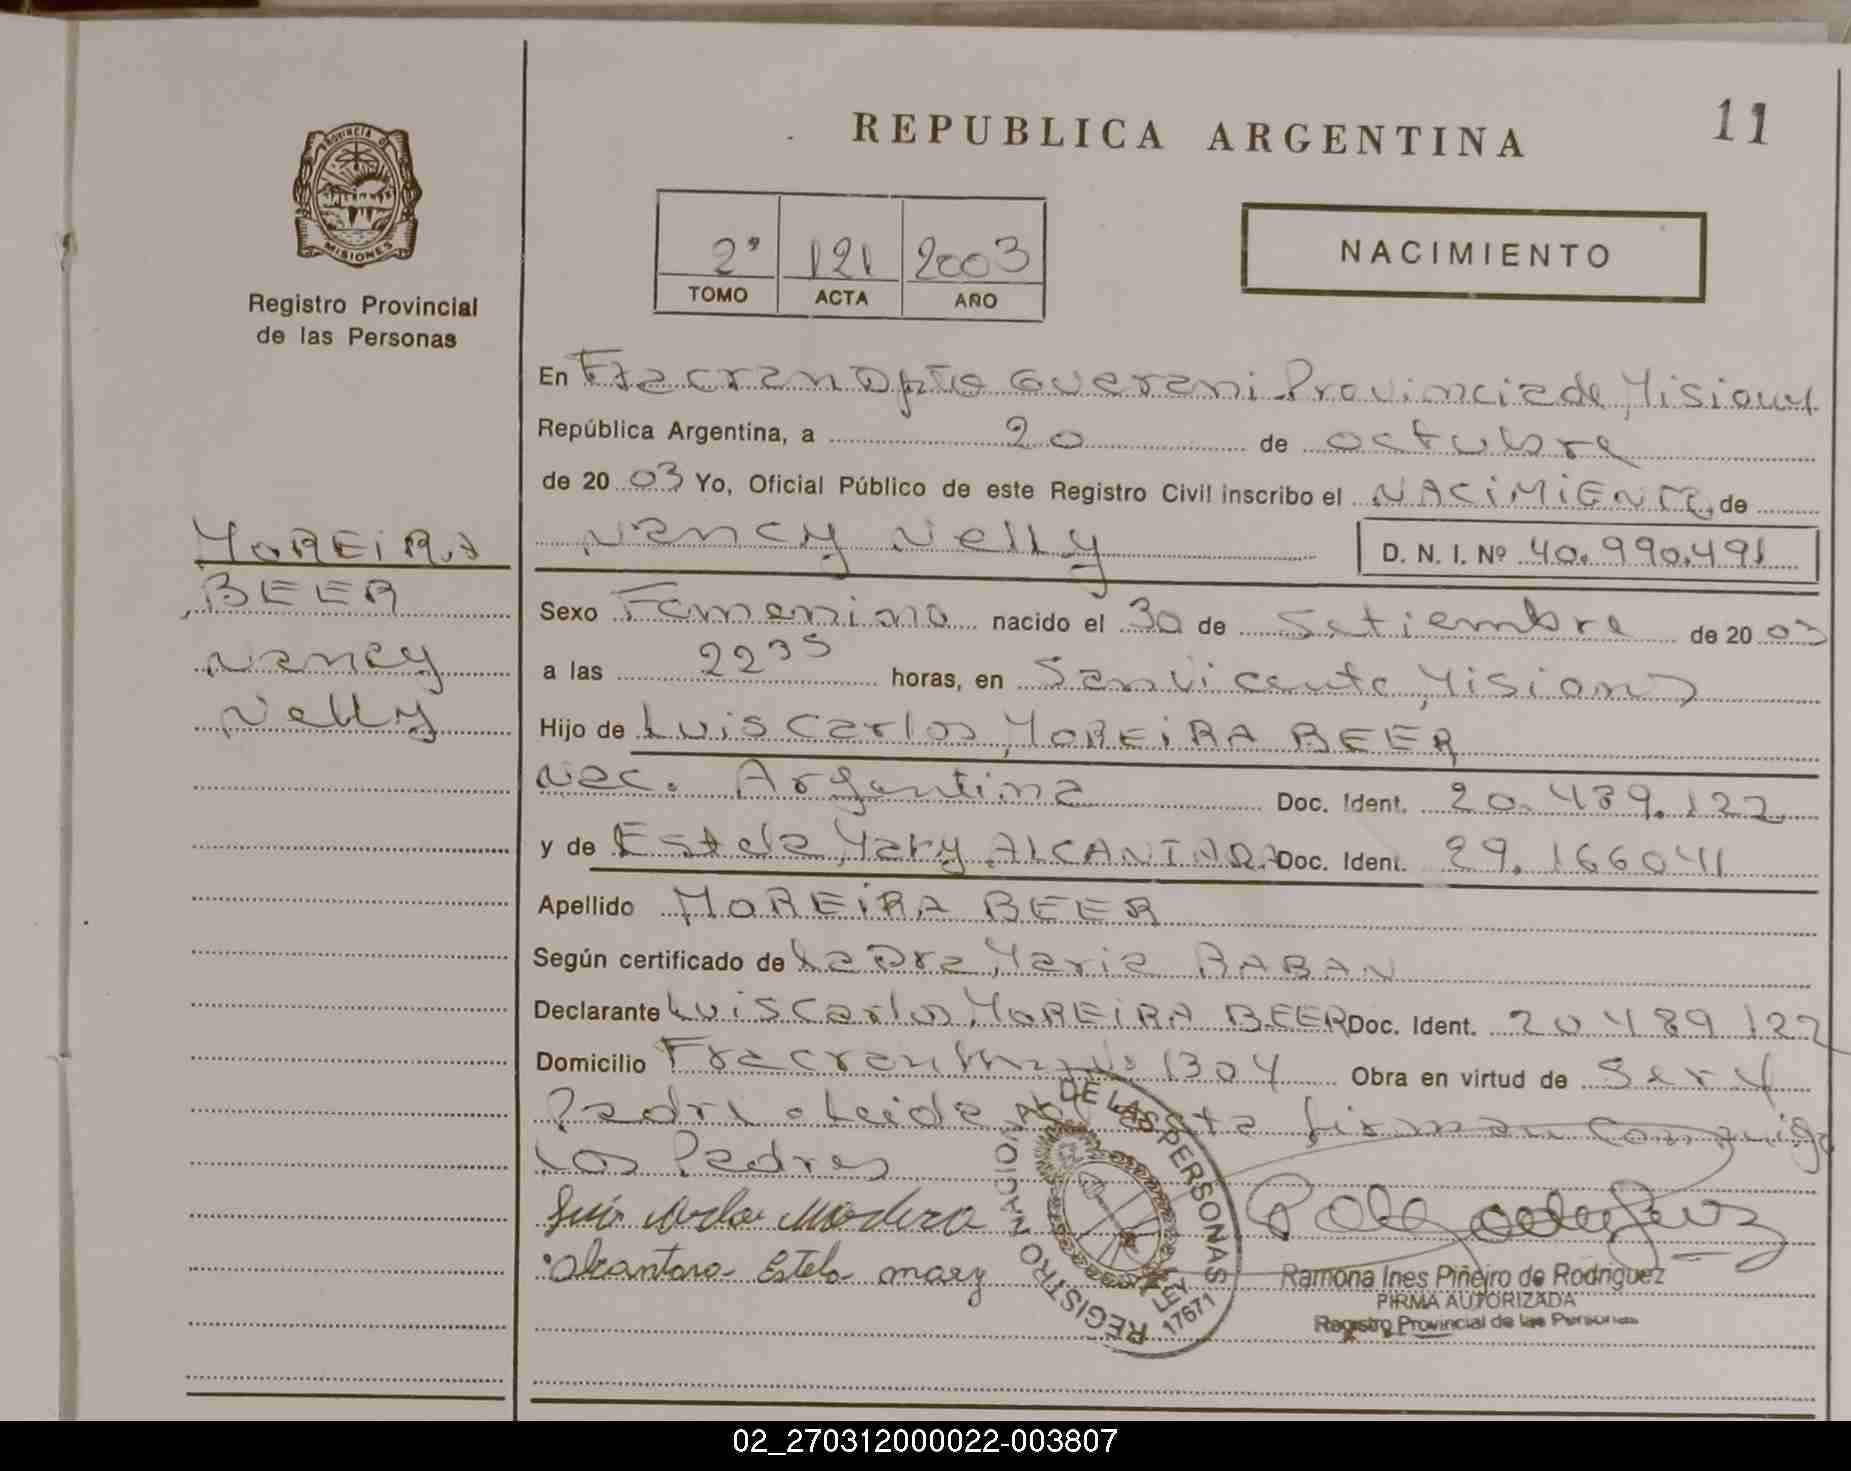 11
REPUBLICA ARGENTINA
PROVINCIA DE
MISIONES
Registro Provincial
de las Personas
2º 121 2003
TOMO ACTA AÑO
NACIMIENTO
En Fracran Dpto Guarani Provincia de Misiones
República Argentina, a 20 de octubre
de 2003 Yo, Oficial Público de este Registro Civil inscribo el NACIMIENTO de
Nancy Nelly D. N. I. Nº 40.990.491
MOREIRA
BEER
Nancy
Nelly
Sexo Femenino nacido el 30 de Setiembre de 2003
a las 2235 horas, en San Vicente Misiones
Hijo de Luis Carlos MOREIRA BEER
Nac. Argentina Doc. Ident. 20.489.122
y de Estela Mary ALCANTARA Doc. Ident. 29.166041
Apellido MOREIRA BEER
Según certificado de la Dra Maria BABAN
Declarante Luis Carlos MOREIRA BEER Doc. Ident. 20 489 122
Domicilio Fracran 1304 Obra en virtud de Ser el
Padre Leida Acta firman conmigo
los Padres
Alcantara Estela mary
REGISTRO NACIONAL DE LAS PERSONAS
LEY 17671
Ramona Ines Piñeiro de Rodriguez
FIRMA AUTORIZADA
Registro Provincial de las Personas
02_270312000022-003807